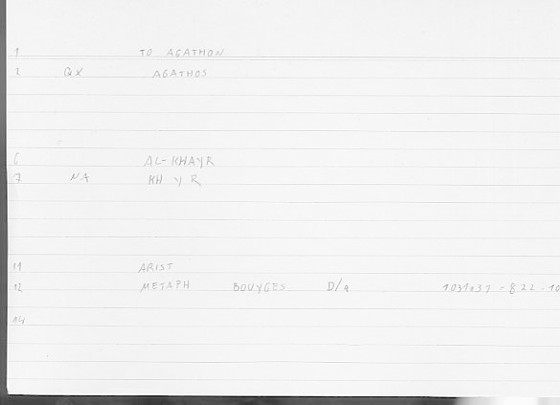 1 TO AGATHON
2 QX AGATHOS
6 AL-KHAYR
7 NA KH Y R
11 ARIST
12 METAPH BOUYGES D/a 1031a31 = 822 - 10
14